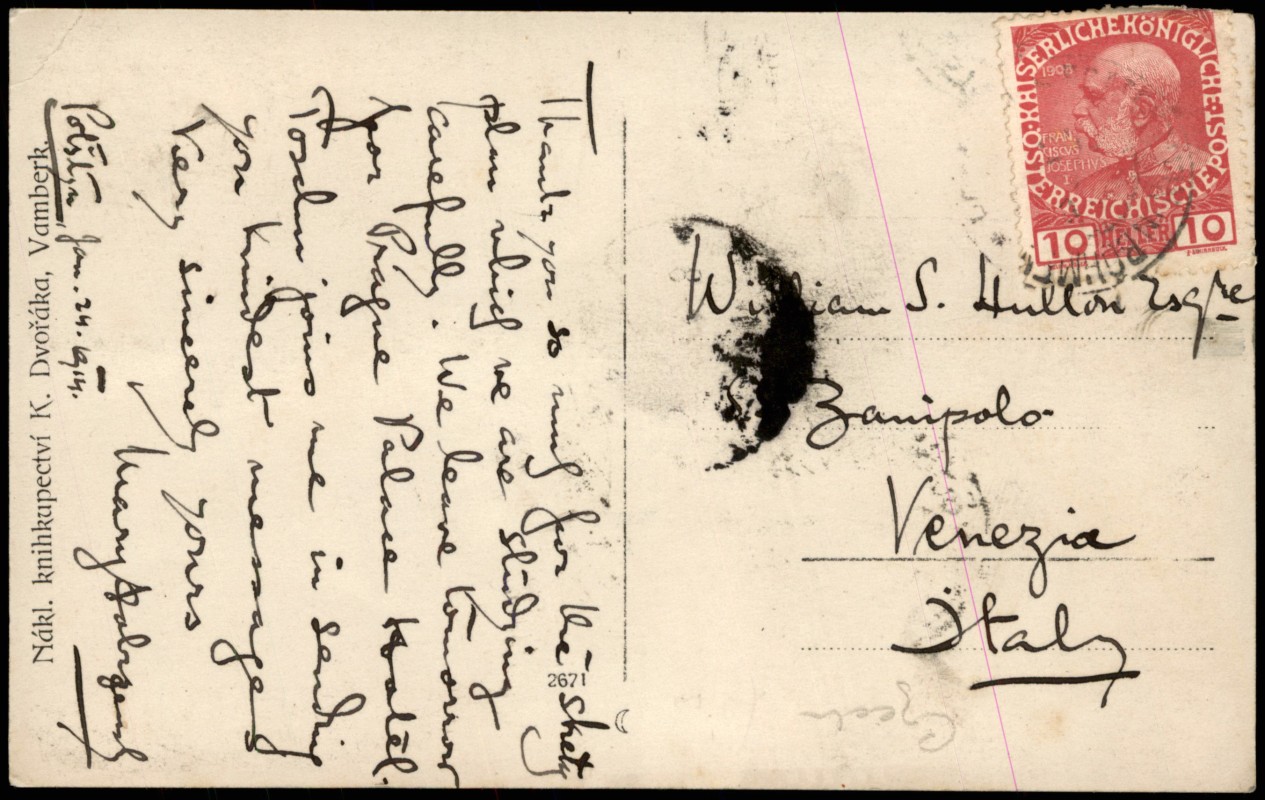 Potštýn, Jan. 24. 1914.
Thank you so much for the sketch
plan which we are studying
carefully. We leave tomorrow
for Prague Palace Hotel.
joins me in sending
you kindest messages
Very sincerely yours
Mary
Nákl. knihkupectví K. Dvořáka, Vamberk.
2671
KAISERLICHEKÖNIGLICHE
ÖSTERREICHISCHE POST
1908
FRAN
CISCVS
JOSEPHVS
I
10 HELLER 10
William S. Hulton Esqre
S. Zanipolo
Venezia
Italy
Czech